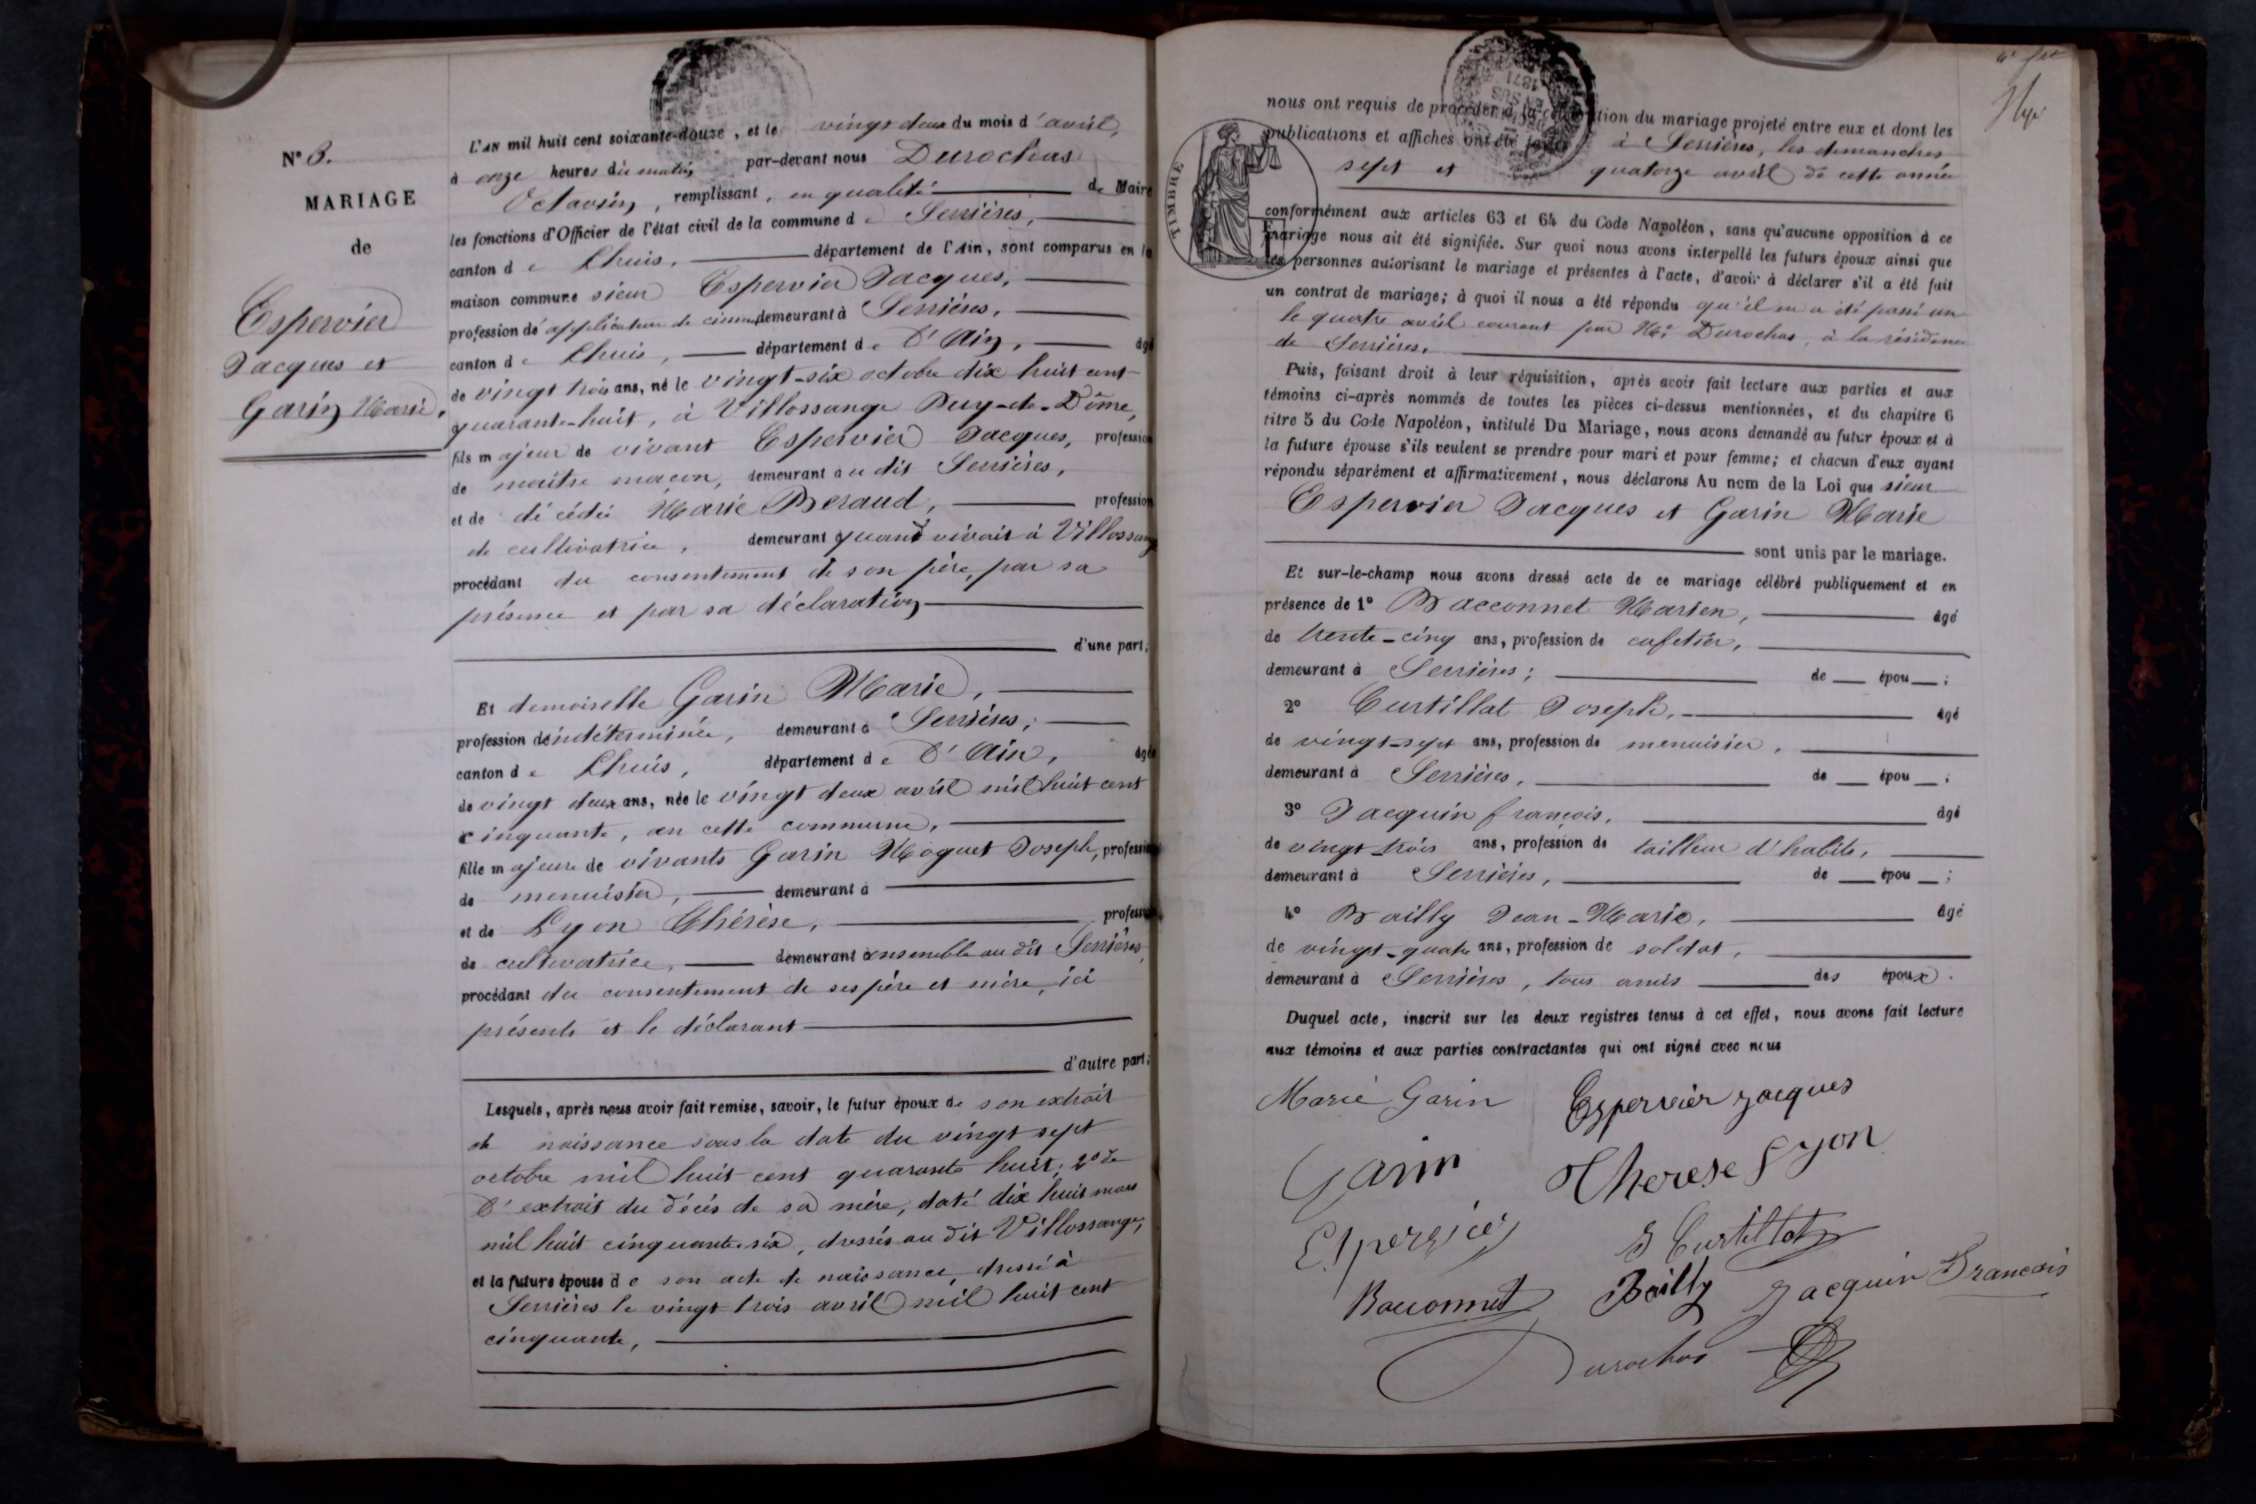 N° 3.
MARIAGE
de
Espervier
Jacques et
Garin Marie.
L'AN mil huit cent soixante-douze, et le vingt deux du mois d'avril,
à onze heures du matin, par-devant nous Durochas
Octavien, remplissant, en qualité de Maire
les fonctions d'Officier de l'état civil de la commune de Serrières,
canton de Lhuis, département de l'Ain, sont comparus en la
maison commune sieur Espervier Jacques,
profession d'application de ciment demeurant à Serrières,
canton de Lhuis, département de l'Ain, âgé
de vingt trois ans, né le vingt-six octobre dix huit cent
quarante-huit, à Villossange Puy-de-Dôme,
fils majeur de vivant Espervier Jacques, profession
de maître maçon, demeurant au dit Serrières,
et de décédée Marie Beraud, profession
de cultivatrice, demeurant quand vivait à Villossange
procédant du consentement de son père, par sa
présence et par sa déclaration
d'une part;
Et demoiselle Garin Marie,
profession d'indéterminée, demeurant à Serrières,
canton de Lhuis, département de l'Ain, âgée
de vingt deux ans, née le vingt deux avril mil huit cent
cinquante, en cette commune,
fille majeure de vivants Garin Moquet Joseph, profession
de menuisier, demeurant à
et de Lyon Thérèse, profession
de cultivatrice, demeurant ensemble au dit Serrières,
procédant du consentement de ses père et mère, ici
présents et le déclarant
d'autre part;
Lesquels, après nous avoir fait remise, savoir, le futur époux de son extrait
de naissance sous la date du vingt sept
octobre mil huit cent quarante huit; 2° de
l'extrait du décès de sa mère, daté dix huit mars
mil huit cinquante six, dressés au dit Villossange,
et la future épouse de son acte de naissance, dressé à
Serrières le vingt trois avril mil huit cent
cinquante,
1871
EN SUS
TIMBRE
nous ont requis de procéder à la célébration du mariage projeté entre eux et dont les
publications et affiches ont été faites à Serrières, les dimanches
sept et quatorze avril de cette année
conformément aux articles 63 et 64 du Code Napoléon, sans qu'aucune opposition à ce
mariage nous ait été signifiée. Sur quoi nous avons interpellé les futurs époux ainsi que
les personnes autorisant le mariage et présentes à l'acte, d'avoir à déclarer s'il a été fait
un contrat de mariage; à quoi il nous a été répondu qu'il en a été passé un
le quatre avril courant par Me Durochas, à la résidence
de Serrières.
Puis, faisant droit à leur réquisition, après avoir fait lecture aux parties et aux
témoins ci-après nommés de toutes les pièces ci-dessus mentionnées, et du chapitre 6
titre 5 du Code Napoléon, intitulé Du Mariage, nous avons demandé au futur époux et à
la future épouse s'ils veulent se prendre pour mari et pour femme; et chacun d'eux ayant
répondu séparément et affirmativement, nous déclarons Au nom de la Loi que sieur
Espervier Jacques et Garin Marie
sont unis par le mariage.
Et sur-le-champ nous avons dressé acte de ce mariage célébré publiquement et en
présence de 1° Bacconnet Marien, âgé
de trente-cinq ans, profession de cafetier,
demeurant à Serrières; de épou ;
2° Curtillat Joseph, âgé
de vingt-sept ans, profession de menuisier,
demeurant à Serrières, de épou ;
3° Jacquin françois, âgé
de vingt-trois ans, profession de tailleur d'habits,
demeurant à Serrières, de épou ;
4° Bailly Jean-Marie, âgé
de vingt-quatre ans, profession de soldat,
demeurant à Serrières, tous amis des époux.
Duquel acte, inscrit sur les deux registres tenus à cet effet, nous avons fait lecture
aux témoins et aux parties contractantes qui ont signé avec nous
Marie Garin Espervier jacques
Garin Therese Lyon
Espervier J Curtillat
Bacconnet Bailly Jacquin Francois
Durochas